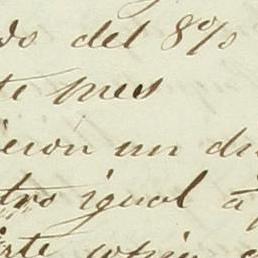 do del 8%
te mes
ieron un di
tro igual á